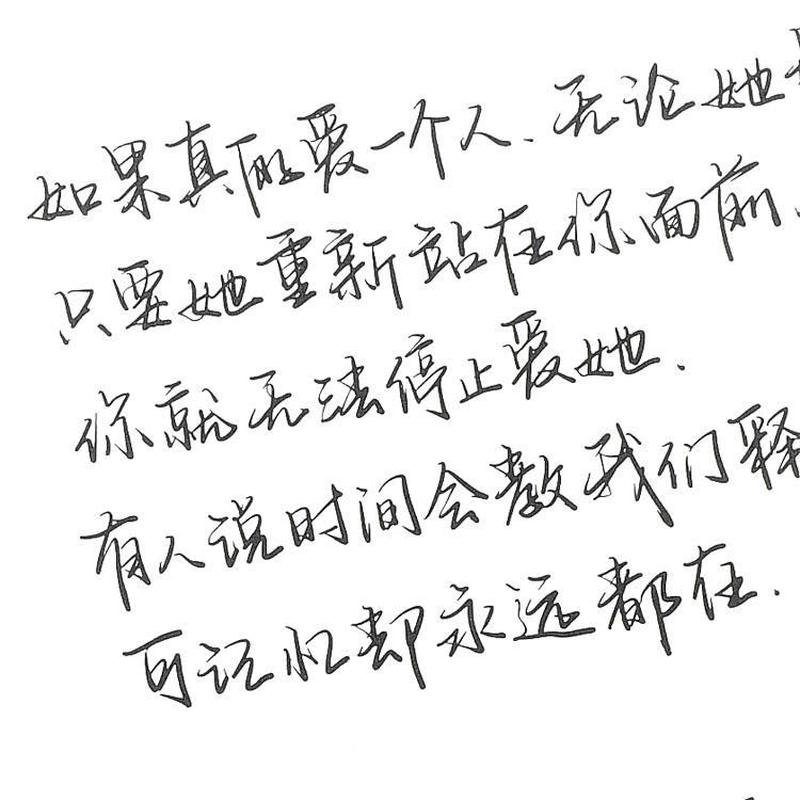 如果真的爱一个人.无论她
只要她重新站在你面前.
你就无法停止爱她.
有人说时间会教我们释
可记忆却永远都在.